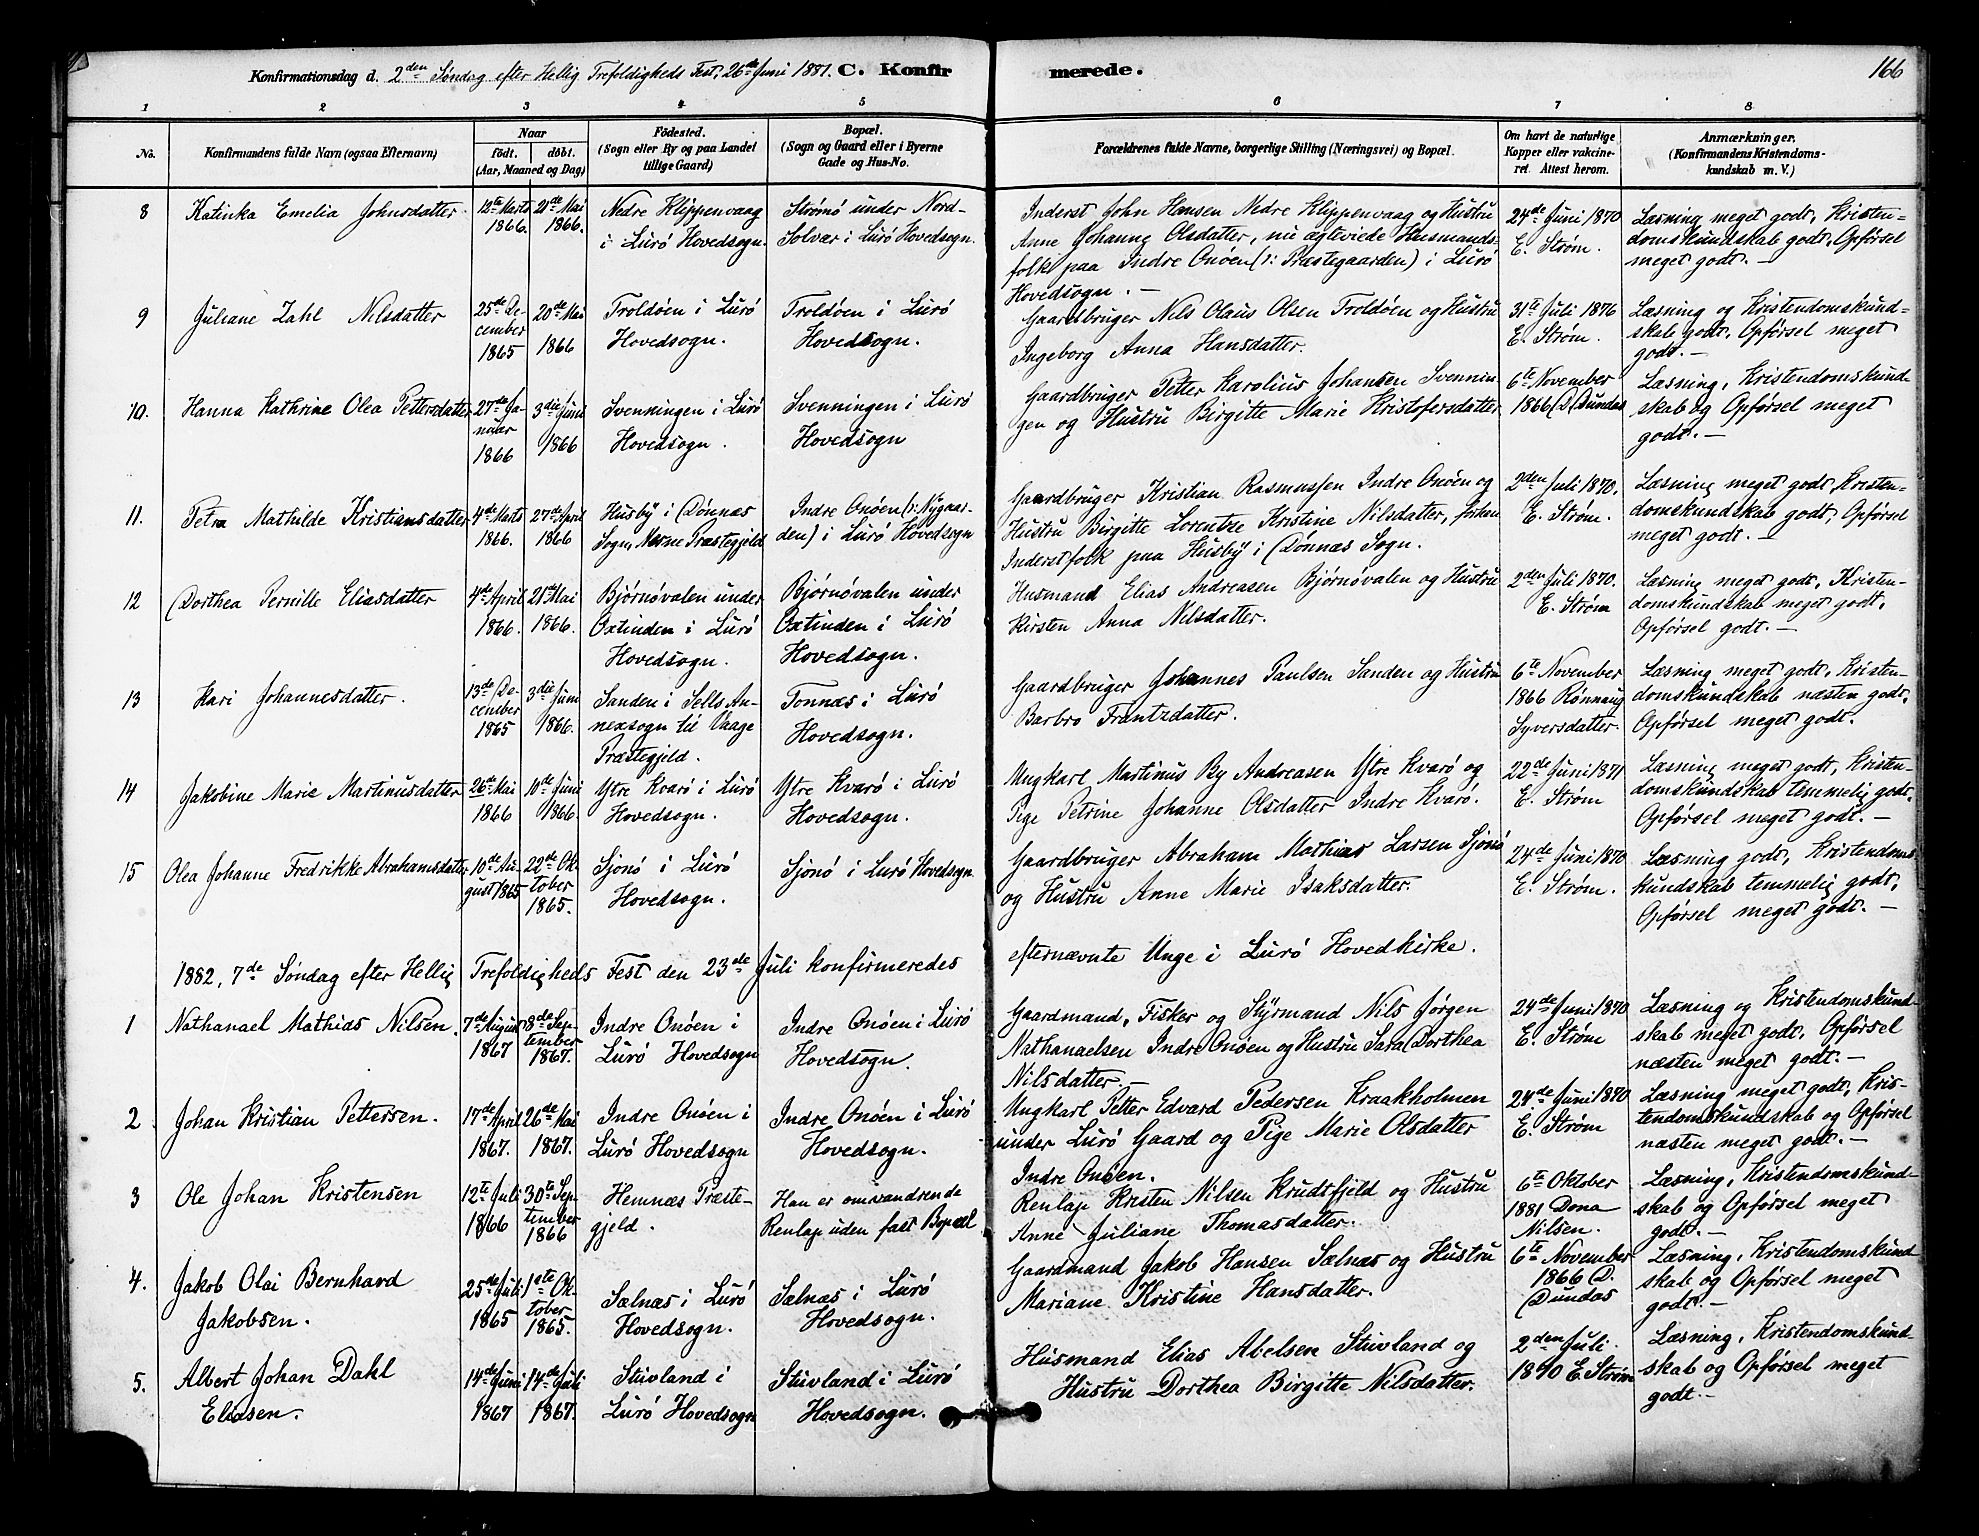 Konfirmationsdag d. 2den Søndag efter Hellig Trefoldigheds Fest, 26de Juni 1881. C. Konfirmerede. 166
1 2 3 4 5 6 7 8
No. Konfirmandens fulde Navn (ogsaa Efternavn) Naar født. døbt. (Aar, Maaned og Dag) Födested. (Sogn eller By og paa Landet tillige Gaard) Bopæl. (Sogn og Gaard eller i Byerne Gade og Hus-No. Forældrenes fulde Navne, borgerlige Stilling (Næringsvei) og Bopæl. Om havt de naturlige Kopper eller vakcineret. Attest herom. Anmærkninger, (Konfirmandens Kristendomskundskab m. V.)
8 Katinka Emelia Johnsdatter. 12te Marts 21de Mai Nedre Klippenvaag Strömö under Nord- Inderst John Hansen Nedre Klippenvaag og Hustru 24de Juni 1870 Læsning meget godt, Kristen-
1866. 1866. i Lurö Hovedsogn. Solvær i Lurö Hovedsogn. Anne Johanne Olsdatter, nu ægteviede Husmands- E. Strøm. domskundskab godt, Opførsel
folk paa Indre Onöen (ɔ: Præstegaarden) i Lurö meget godt. —
Hovedsogn. —
9 Juliane Zahl Nilsdatter 25de De- 20de Mai Troldöen i Lurö Troldöen i Lurö Gaardbruger Nils Olaus Olsen Troldöen og Hustru 31te Juli 1876 Læsning og Kristendomskund-
cember 1866 Hovedsogn. Hovedsogn. Ingeborg Anna Hansdatter. E. Strøm. skab godt, Opførsel meget
1865 godt. —
10. Hanna Kathrine Olea Pettersdatter 27de Ja- 3die Juni Svenningen i Lurö Svenningen i Lurö Gaardbruger Petter Karolius Johansen Svennin- 6te November Læsning, Kristendomskund-
nuar 1866 Hovedsogn. Hovedsogn gen og Hustru Birgitte Marie Kristofersdatter 1866 D. Dundas skab og Opførsel meget
1866 godt. —
11. Petra Mathilde Kristiansdatter 4de Marts 27de April Husby i Dönnæs Indre Onöen (ɔ: Nygaar- Gaardbruger Kristian Rasmussen Indre Onöen og 2den Juli 1870. Læsning meget godt, Kristen-
1866. 1866 Sogn, Nesne Præstegjeld den) i Lurö Hovedsogn Hustru Birgitte Lorentze Kristine Nilsdatter, forhen E. Strøm. domskundskab godt, Opførsel
Inderstfolk paa Husby i Dönnæs Sogn. meget godt. —
12 Dorthea Pernille Eliasdatter 4de April 21de Mai Bjørnøvalen under Bjørnøvalen under Husmand Elias Andreasen Bjørnøvalen og Hustru 2den Juli 1870. Læsning meget godt, Kristen-
1866. 1866. Oxtinden i Lurö Oxtinden i Lurö Kirsten Anna Nilsdatter. E. Strøm domskundskab meget godt,
Hovedsogn. Hovedsogn. Opførsel godt. —
13 Kari Johannesdatter. 13de De- 3die Juni Sanden i Sells An- Tonnæs i Lurö Gaardbruger Johannes Paulsen Sanden og Hustru 6te November Læsning meget godt, Kristen-
cember 1866. nexsogn til Vaage Hovedsogn. Barbro Frantzdatter. 1866 Rønnaug domskundskab næsten godt,
1865 Præstegjeld. Syversdatter. Opførsel meget godt.
14 Jakobine Marie Martinusdatter 26de Mai 10de Juni Ytre Kvarö i Lurö Ytre Kvarö i Lurö Ungkarl Martinus By Andreasen Ytre Kvarö og 22de Juni 1871 Læsning meget godt, Kristen-
1866 1866. Hovedsogn. Hovedsogn. Pige Petrine Johanne Olsdatter Indre Kvarö. E. Strøm domskundskab temmelig godt,
Opførsel meget godt. —
15 Olea Johanne Fredrikke Abrahamsdatter 10de Au- 22de Ok- Sjonö i Lurö Sjonö i Lurö Hovedsogn. Gaardbruger Abraham Mathias Larsen Sjonö 24de Juni 1870 Læsning godt, Kristendoms-
gust 1865 tober Hovedsogn. og Hustru Anne Marie Isaksdatter. E. Strøm. kundskab temmelig godt,
1865. Opførsel meget godt. —
1882, 7de Søndag efter Hellig Trefoldigheds Fest den 23de Juli konfirmeredes efternævnte Unge i Lurö Hovedkirke.
1 Nathanael Mathias Nilsen. 7de August 8de Sep- Indre Onöen i Indre Onöen i Lurö Gaardmand, Fisker og Styrmand Nils Jørgen 24de Juni 1870 Læsning og Kristendomskund-
1867 tember Lurö Hovedsogn Hovedsogn. Nathanaelsen Indre Onöen og Hustru Sara Dorthea E. Strøm skab meget godt, Opførsel
1867. Nilsdatter. — næsten meget godt. —
2 Johan Kristian Pettersen. 17de April 26de Mai Indre Onöen i Indre Onöen i Lurö Ungkarl Petter Edvard Pedersen Kraakholmen 24de Juni 1870 Læsning meget godt, Kris-
1867. 1867. Lurö Hovedsogn Hovedsogn. under Lurö Gaard og Pige Marie Olsdatter E. Strøm tendomskundskab og Opførsel
Indre Onöen. næsten meget godt. —
3 Ole Johan Kristensen 12te Juli 30te Sep- Hemnæs Præste- Han er omvandrende Renlap Kristen Nilsen Krudtfjeld og Hustru 6te Oktober Læsning, Kristendomskund-
1866 tember gjeld. Renlap uden fast Bopæl. Anne Juliane Thomasdatter. 1881 Dona skab og Opførsel meget
1866 Nilsen. godt. —
4. Jakob Olai Bernhard 25de Juli 1ste Ok- Sælnæs i Lurö Sælnæs i Lurö Gaardmand Jakob Hansen Sælnæs og Hustru 6te November Læsning, Kristendomskund-
Jakobsen. 1865 tober Hovedsogn. Hovedsogn. Mariane Kristine Hansdatter. 1866 D. skab og Opførsel meget
1865. Dundas godt. —
5. Albert Johan Dahl 14de Juni 14de Juli Stuvland i Stuvland i Lurö Husmand Elias Abelsen Stuvland og 2den Juli Læsning, Kristendomskund-
Eliasen. 1867 1867. Lurö Hovedsogn Hovedsogn. Hustru Dorthea Birgitte Nilsdatter. 1870 E. Strøm skab og Opførsel meget
godt. —